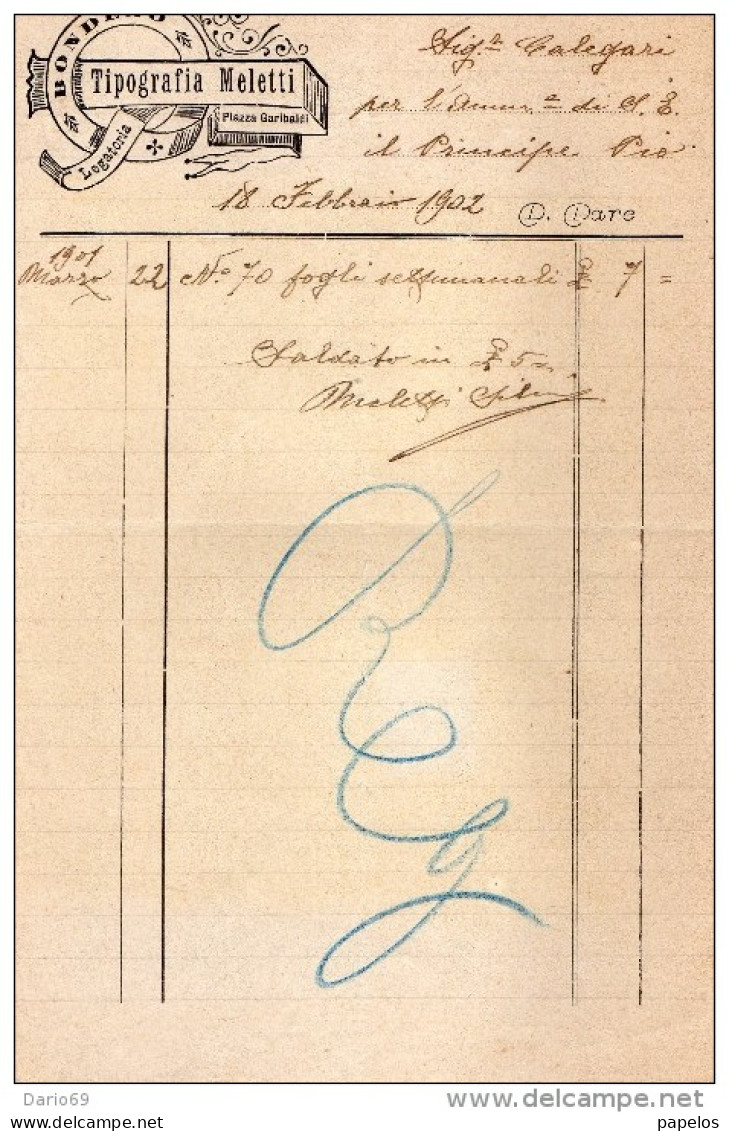 BONDENO
Tipografia Meletti
Piazza Garibaldi
Legatoria
Sig.r Calegari
per l'Amm.e di S. E.
il Principe Pio
18 Febbraio 1902
D. Dare
1901
Marzo 22 No. 70 fogli settimanali £ 7 =
Saldato in £ 5 =
Meletti
Reg
Dario69
delcampe.net
papelos